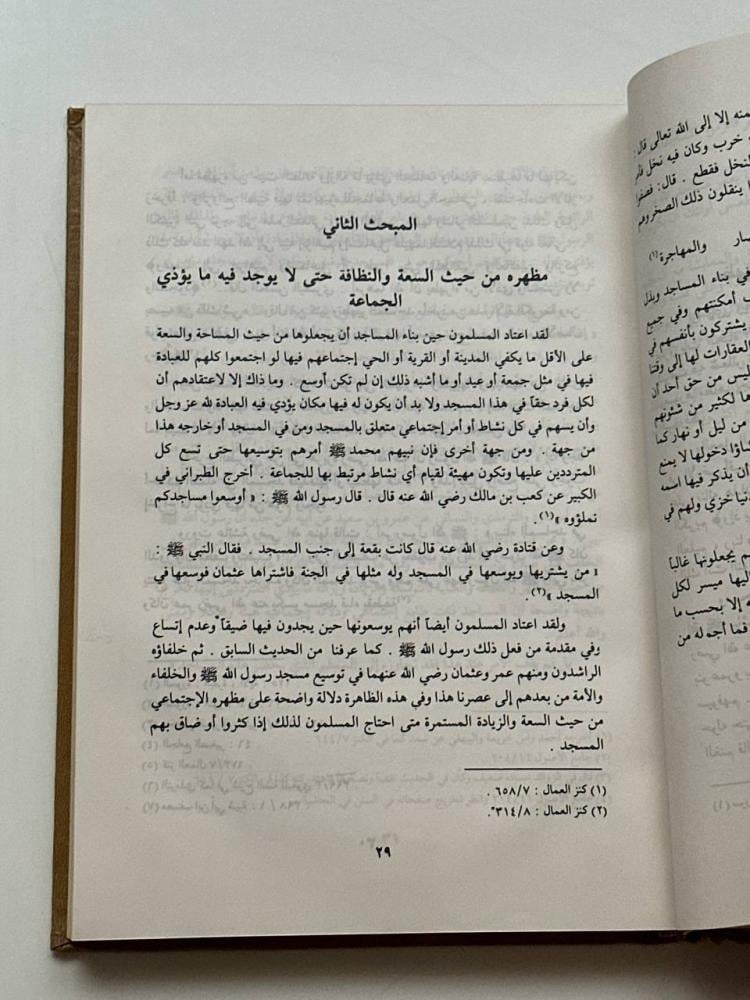 المبحث الثاني
مظهره من حيث السعة والنظافة حتى لا يوجد فيه ما يؤذي
الجماعة
لقد اعتاد المسلمون حين بناء المساجد أن يجعلوها من حيث المساحة والسعة
على الأقل ما يكفي المدينة أو القرية أو الحي إجتماعهم فيها لو اجتمعوا كلهم للعبادة
فيها في مثل جمعة أو عيد أو ما أشبه ذلك إن لم تكن أوسع . وما ذاك إلا لاعتقادهم أن
لكل فرد حقاً في هذا المسجد ولا بد أن يكون له فيها مكان يؤدي فيه العبادة لله عز وجل
وأن يسهم في كل نشاط أو أمر إجتماعي متعلق بالمسجد ومن في المسجد أو خارجه هذا
من جهة . ومن جهة أخرى فإن نبيهم محمد ﷺ أمرهم بتوسيعها حتى تسع كل
المترددين عليها وتكون مهيئة لقيام أي نشاط مرتبط بها للجماعة . أخرج الطبراني في
الكبير عن كعب بن مالك رضي الله عنه قال . قال رسول الله ﷺ : « أوسعوا مساجدكم
تملؤوه »(١) .
وعن قتادة رضي الله عنه قال كانت بقعة إلى جنب المسجد . فقال النبي ﷺ :
« من يشتريها ويوسعها في المسجد وله مثلها في الجنة فاشتراها عثمان فوسعها في
المسجد »(٢) .
ولقد اعتاد المسلمون أيضاً أنهم يوسعونها حين يجدون فيها ضيقاً وعدم إتساع
وفي مقدمة من فعل ذلك رسول الله ﷺ . كما عرفنا من الحديث السابق . ثم خلفاؤه
الراشدون ومنهم عمر وعثمان رضي الله عنهما في توسيع مسجد رسول الله ﷺ والخلفاء
والأمة من بعدهم إلى عصرنا هذا وفي هذه الظاهرة دلالة واضحة على مظهره الإجتماعي
من حيث السعة والزيادة المستمرة متى احتاج المسلمون لذلك إذا كثروا أو ضاق بهم
المسجد .
(١) كنز العمال : ٦٥٨/٧ .
(٢) كنز العمال : ٣١٤/٨ .
٢٩
منه إلا إلى الله تعالى قال :
خرب وكان فيه نخل
النخل فقطع . قال :
ينقلون ذلك الصخر وهم
والمهاجرة(١)
في بناء المساجد
أمكنتهم وفي جميع
يشتركون بأنفسهم في
العقارات لها إلى وقتنا
ليس من حق أحد أن
لكثير من شئونهم
من ليل أو نهار كما
دخولها لا يمنع
أن يذكر فيها اسمه
خزي ولهم في
يجعلونها غالباً
ميسر لكل
إلا بحسب ما
فما أجمله من
(١)